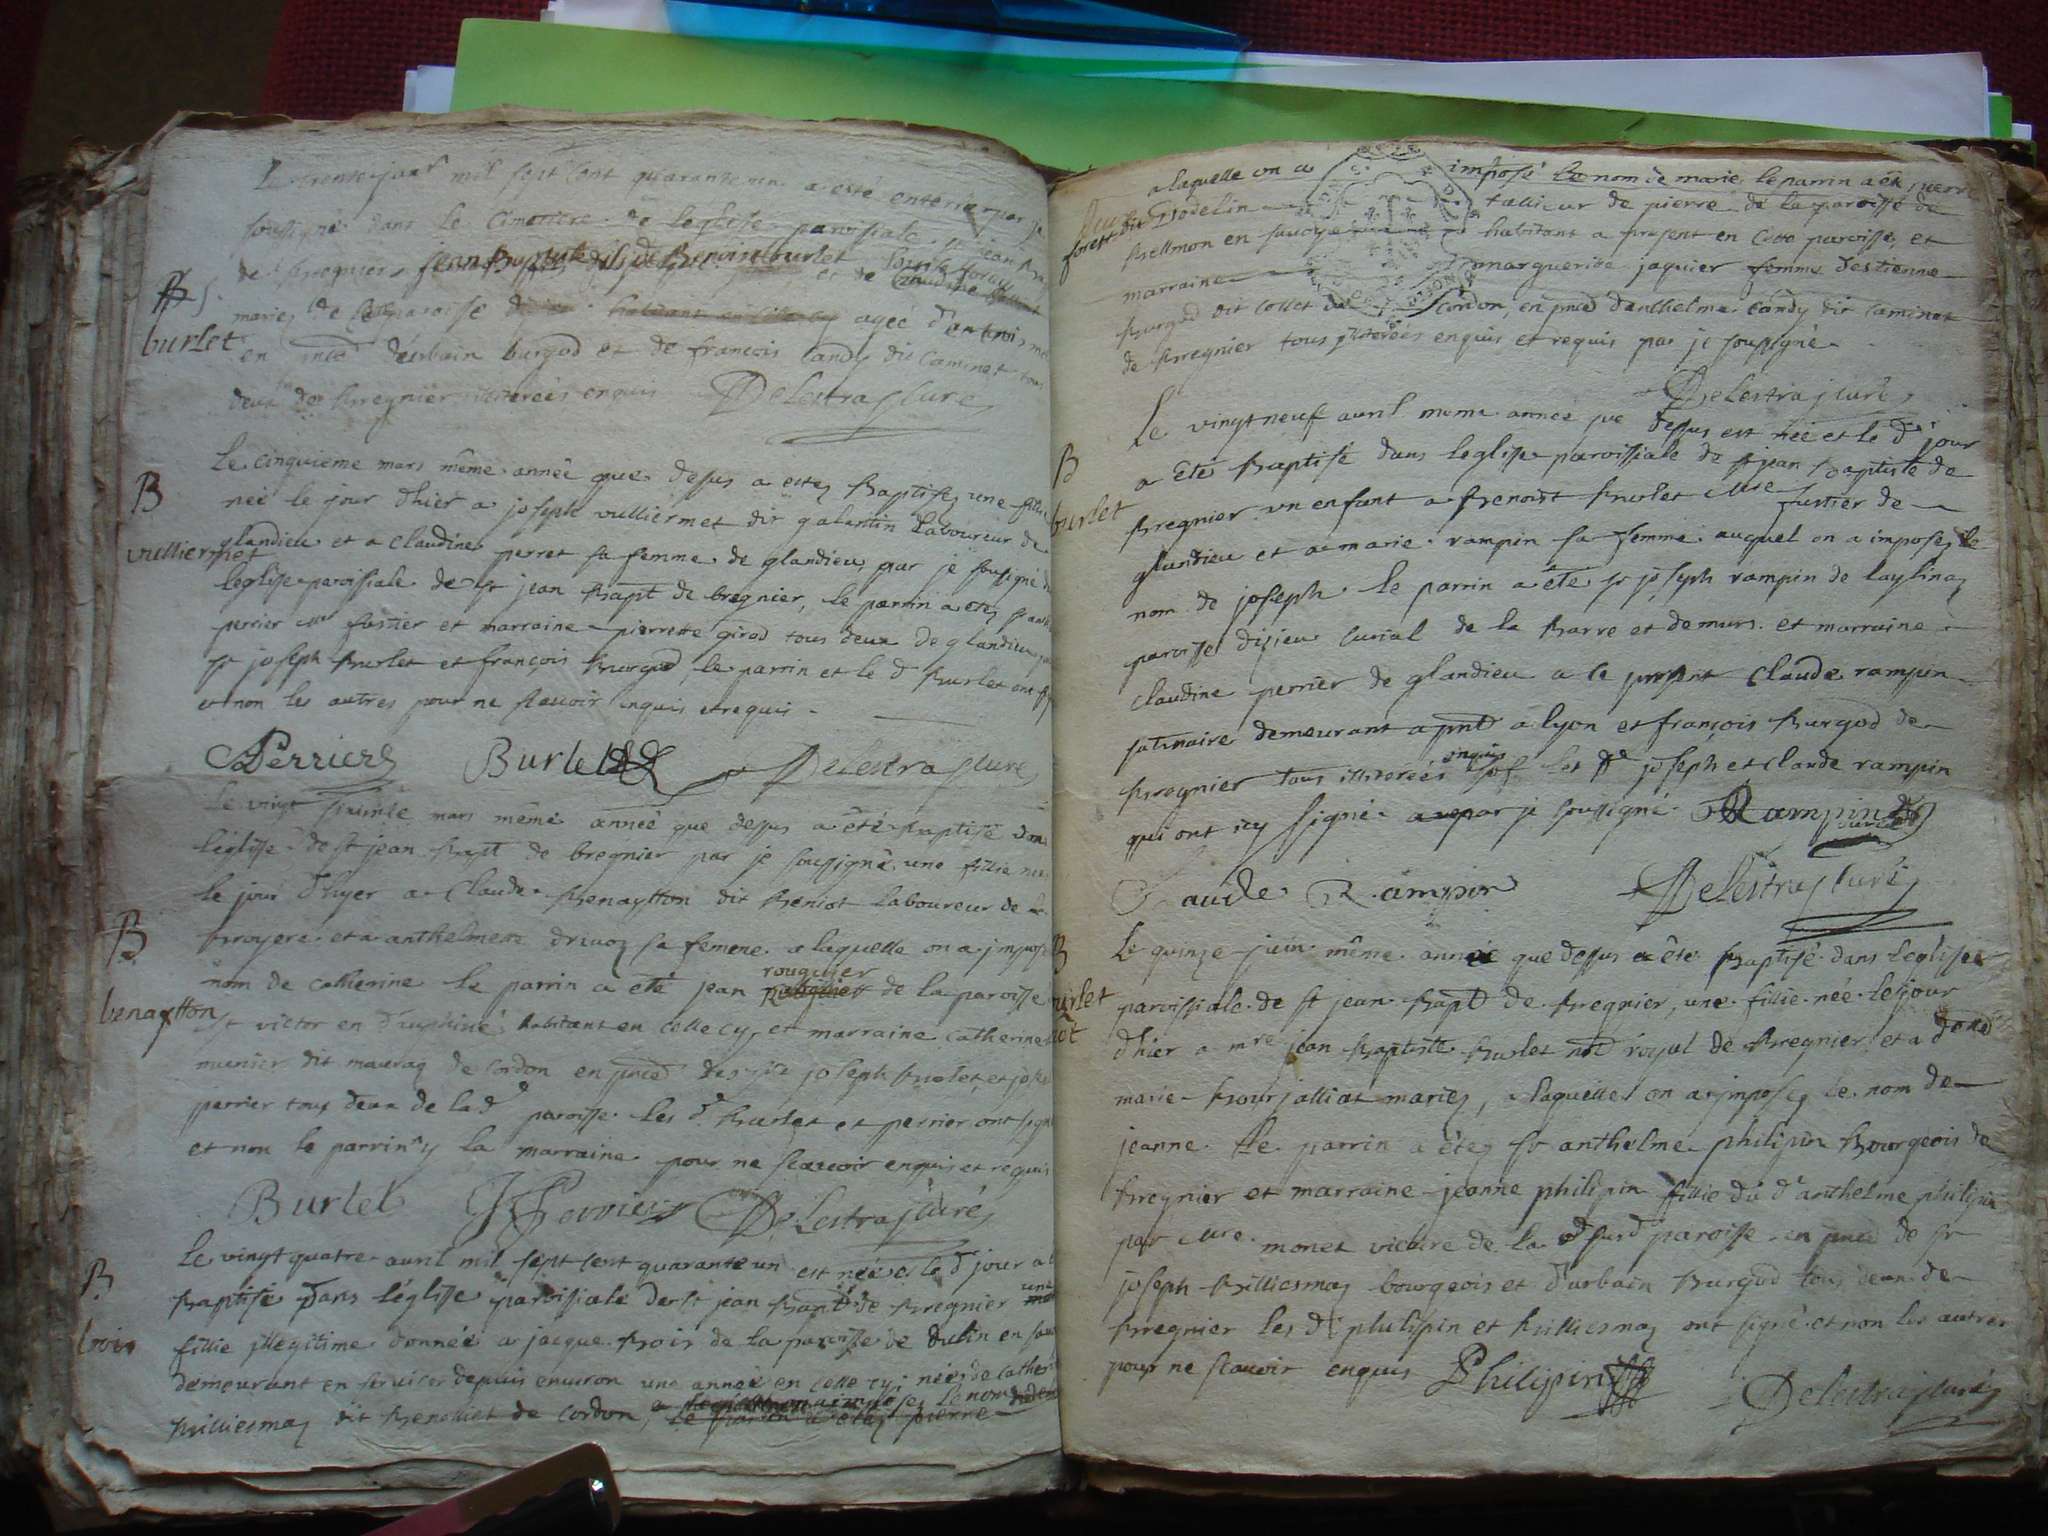 Le trente janr mil sept cent quarante un a esté enterré par je
soussigné dans le cimetiere de leglise paroisiale st jean
de bregnier jean baptiste fils de benoist burlet
et de
mariez de paroisse habitant agée d'environ
burlet
en pnce d'urbain burgod et de francois candy dit caminet tous
deux de bregnier illiterées enquis Delestra Curé
Le cinquieme mars même année que dessus a estez baptisez une fille
B
née le jour d'hier a joseph vulliermet dit galantin laboureur de
vulliermet
glandieu et a claudine perret sa femme de glandieu par je sousigné
leglise paroisiale de st jean bapt de bregnier, le parrin a etez
perrier mre fustier et marraine pierrette girod tous deux de glandieu
sr joseph burlet et françois burgod le parrin et le d burlet ont
et non les autres pour ne scavoir enquis et requis
Perrier Burlet Delestra Curé
Le vingt mars même année que dessus a été baptisé dans
l'églisse de st jean bapt de bregnier par je soussigné une fillie née
le jour d'hyer a claude benaytton dit beniot laboureur de
B
broyere et a anthelmene drivoz sa femme a laquelle on a imposé
nom de catherine le parrin a eté jean rouguier de la paroisse
benaytton
st victor en d'auphiné habitant en cette cy, et marraine catherine
munier dit mauraz de cordon en pnce des sr joseph burlet et joseph
perrier tous deux de la d paroisse les d burlet et perrier ont signé
et non le parrin ny la marraine pour ne scavoir enquis et requis
Burlet J Perrier Delestra Curé
Le vingt quatre avril mil sept cent quarante un est née et le d jour a
B
baptisé dans l'églisse paroissiale de st jean bapt de bregnier une
bois
fillie illegitime donnée a jacque bois de la paroisse de dulin en
demeurant en service depuis environ une année en cette cy, née de
billiemaz dit benolliet de cordon, le parrin a etez pierre
a laquelle on a imposé le nom de marie le parrin a été pierre
bodelin taellieur de pierre de la paroisse de
bellmon en savoye habitant a present en cette paroisse, et
marraine marguerite jaquier femme d'estienne
burgod dit collet de cordon, en pnce d'anthelme candy dit caminet
de bregnier tous illiterées enquis et requis par je soussigné
Delestra Curé
Le vingt neuf avril meme année que dessus est née et le d jour
B
a été baptisé dans leglisse paroissiale de st jean baptiste de
burlet
bregnier un enfant a benoist burlet mre fustier de
glandieu et a marie rampin sa femme auquel on a imposez le
nom de joseph le parrin a été sr joseph rampin de
paroisse curial de la barre et demurs et marraine
claudine perrier de glandieu a ce present claude rampin
satinaire demeurant a pnt a lyon et françois burgod de
bregnier tous illiterées enquis sof les d joseph et claude rampin
qui ont icy signé par je soussigné Rampin
Claude Rampin Delestra Curé
Le quinze juin même année que dessus a été baptisé dans leglisse
B
paroissiale de st jean bapt de bregnier, une fillie née le jour
burlet
not
d'hier a mre jean baptiste burlet not royal de bregnier et a
marie bourjalliat mariez, a laquelle on a imposez le nom de
jeanne le parrin a étez sr anthelme philipin bourgeois de
bregnier et marraine jeanne philipin fillie du d anthelme philipin
par mre monet vicaire de la paroisse en pnce de sr
joseph billiemaz bourgeois et d'urbain burgod tous deux de
bregnier les d philipin et billiemaz ont signé et non les autres
pour ne scavoir enquis Philipin
Delestra Curé